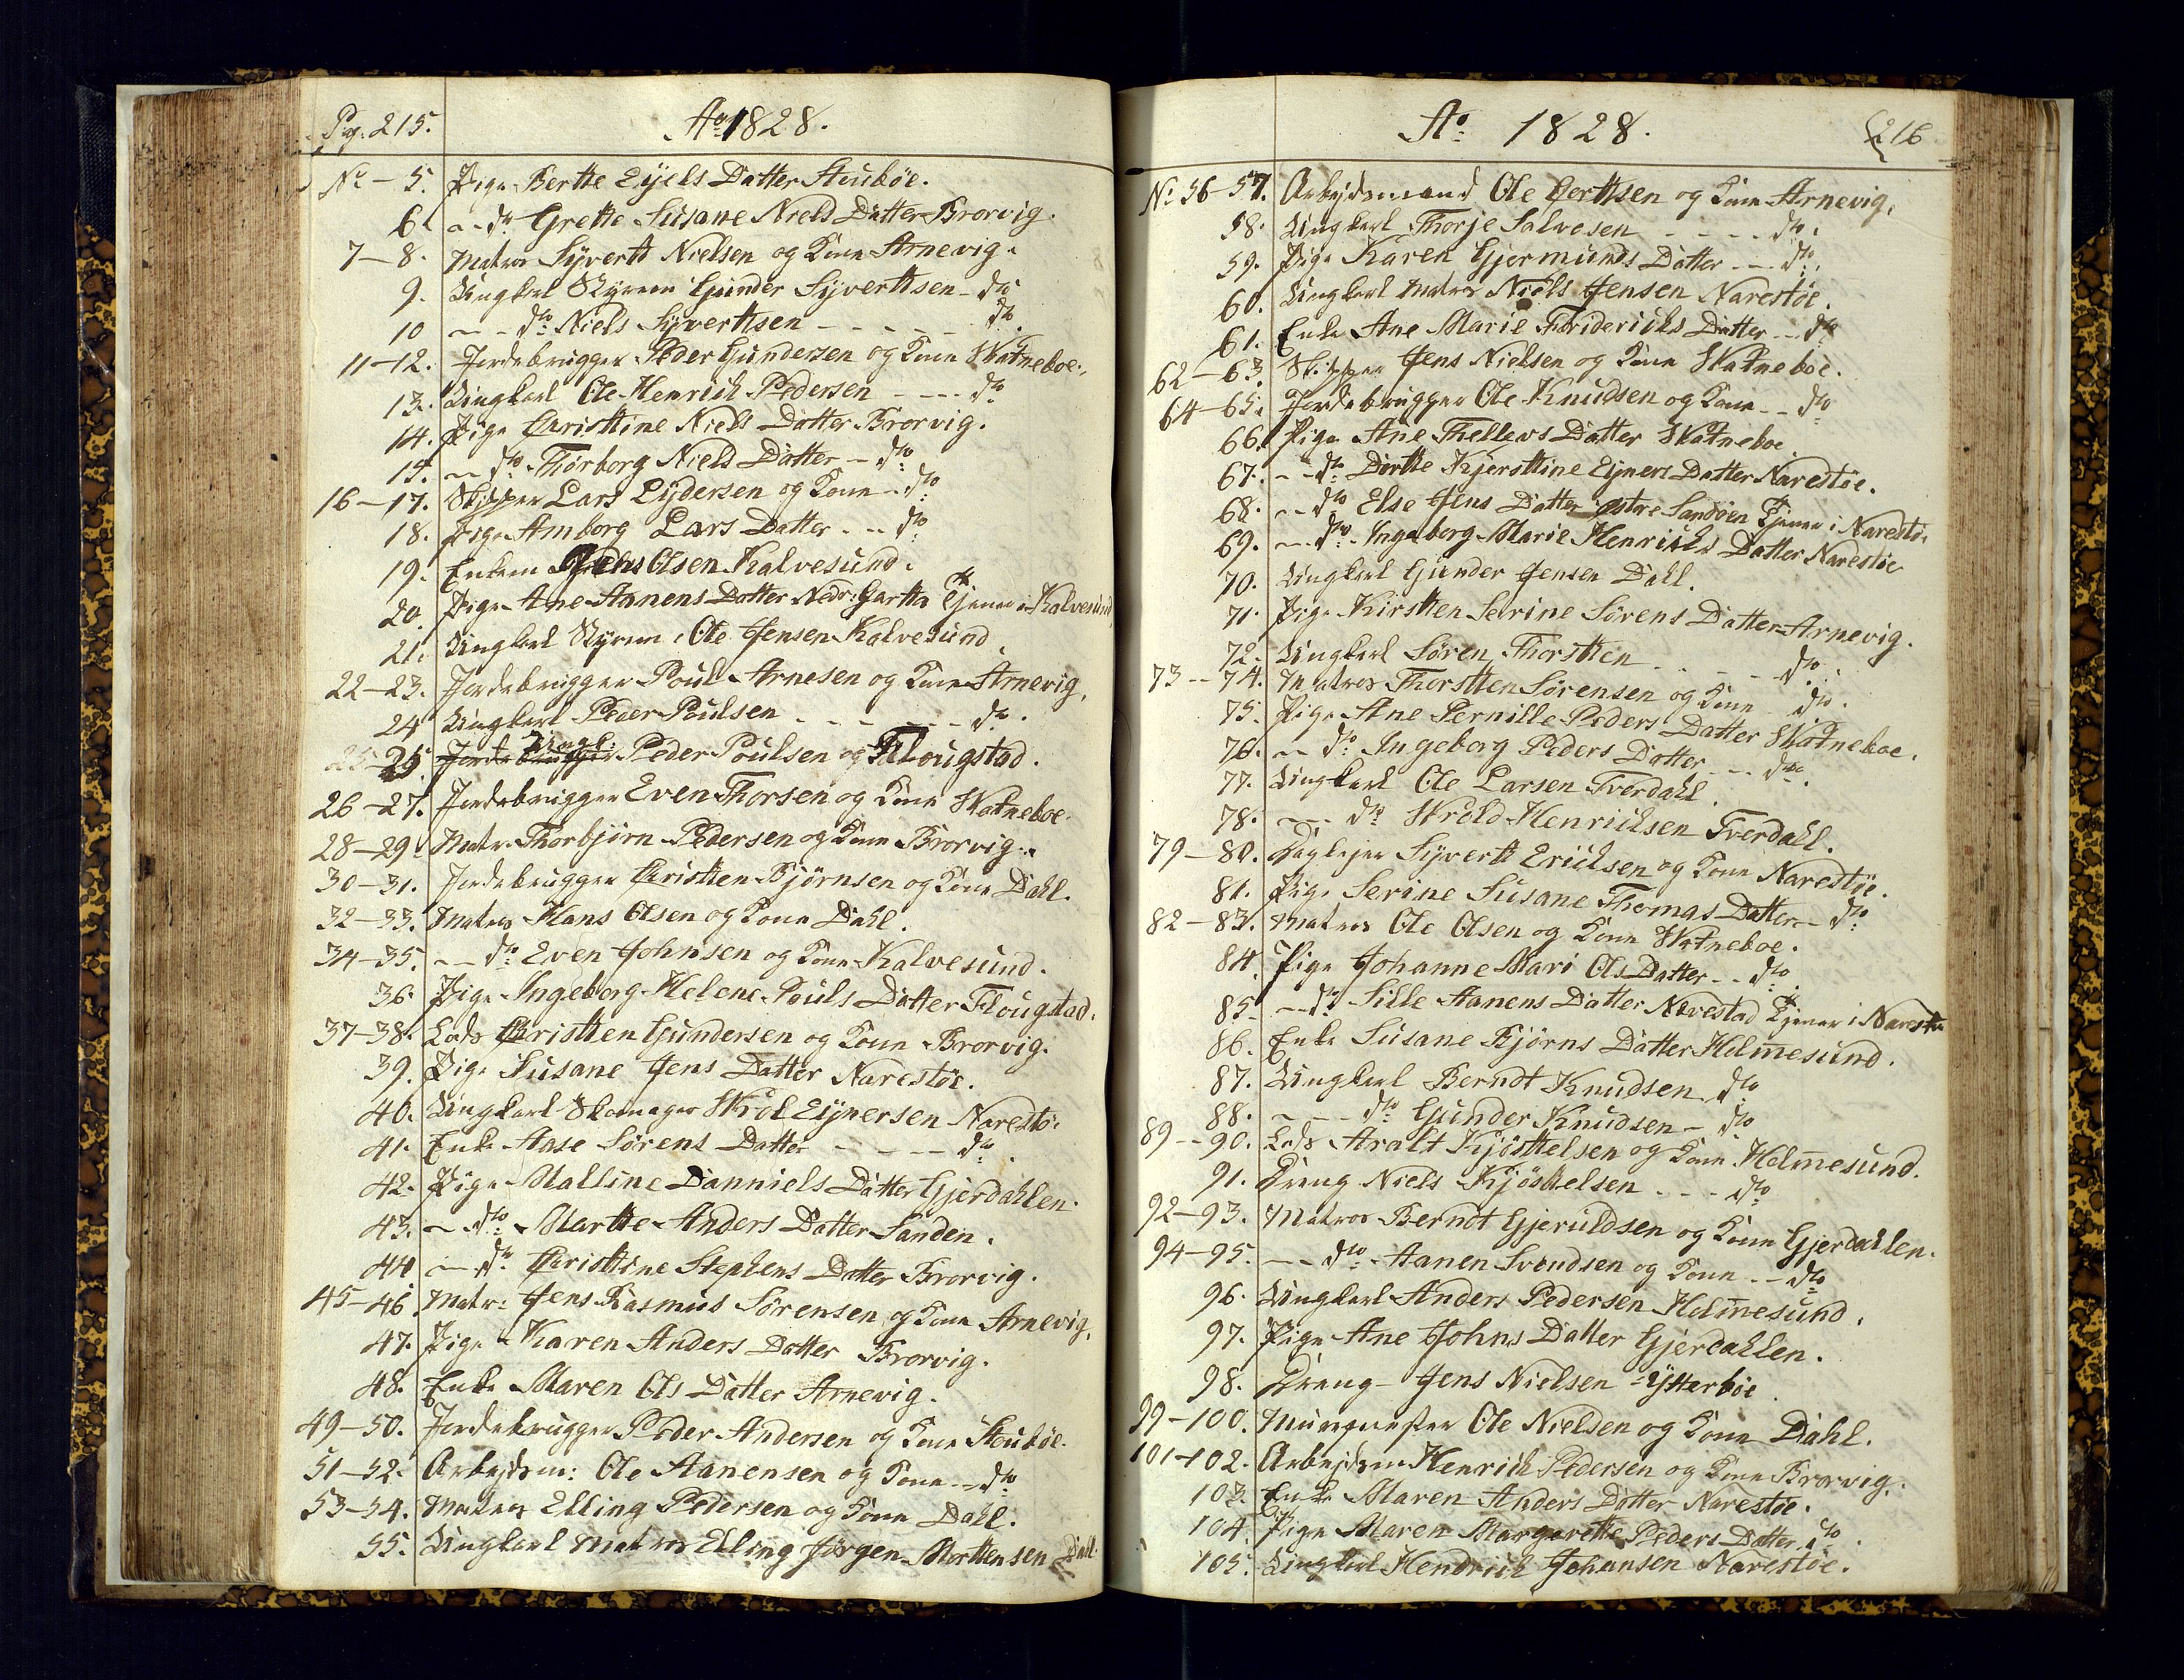 Pg. 215.
Ao 1828.
No - 5. Pige Berthe Eyels Datter Stuböe.
6. - do Grethe Susane Niels Datter Brorvig.
7-8. Matros Syvertt Nielsen og Kone Arnevig.
9. Ungkarl Styrm: Gunder Syvertsen - do
10 - - do Niels Syvertsen - - - - - do.
11-12. Jordebrugger Peder Gundersen og Kone Skatneboe.
13. Ungkarl Ole Henrich Pedersen - - - do
14. Pige Christine Niels Datter Brorvig.
15. - do Thorborg Niels Datter - do
16-17. Skipper Lars Lydersen og Kone - do
18. Pige Amborg Lars Datter - - do
19. Enkem Olsen Kalvesund.
20. Pige Ane Aanens Datter Nedr. Gartta Tjener i Kalvesund
21. Ungkarl Styrm: Ole Jensen Kalvesund.
22-23. Jordebrugger Poul Arnesen og Kone Arnevig.
24 Ungkarl Peder Poulsen - - - - - do.
Ungk:
25 Jordebrugger Peder Poulsen og Flougstad.
26-27. Jordebrugger Even Thorsen og Kone Skatneboe.
28-29. Matr. Thorbjørn Pedersen og Kone Brorvig.
30-31. Jordebrugger Christen Bjørnsen og Kone Dahl.
32-33. Matros Hans Olsen og Kone Dahl.
34-35. - - do Even Johnsen og Kone Kalvesund.
36. Pige Ingeborg Helene Pouls Datter Flougstad.
37-38. Lods Christen Gundersen og Kone Brorvig.
39. Pige Susane Jens Datter Narestöe.
40. Ungkarl Skomager Skrol Eynersen Narestö.
41. Enke Aase Sørens Datter - - - - do.
42. Pige Malline Danniels Datter Gjerdahlen.
43. - do Marthe Anders Datter Sanden.
44 - do Christine Stephens Datter Brorvig.
45-46. Matr: Jens Rasmus Sørensen og Kone Arnevig.
47. Pige Karen Anders Datter Brorvig.
48. Enke Maren Ols Datter Arnevig.
49-50. Jordebrugger Peder Andersen og Kone Stuböe.
51-52. Arbejdsm: Ole Aanensen og Kone - do
53-54. Matros Elling Pedersen og Kone Dahl.
55. Ungkarl Matros Elling Jørgen Morttensen Dahl
Ao 1828.
216
No 56-57. Arbejdsmand Ole Gerttsen og Kone Arnevig.
58. Ungkarl Thorje Salvesen - - - - do.
59. Pige Karen Gjermunds Datter - - do.
60. Ungkarl Matros Niels Jensen Narestöe.
61. Enke Ane Marie Friderichs Datter - - do
62-63. Skipper Jens Nielsen og Kone Skatneböe.
64-65. Jordebrugger Ole Knudsen og Kone - - do
66. Pige Ane Thellevs Datter Skatneboe.
67. - - do Dortte Kjersttine Eyners Datter Narestöe.
68. - - do Else Jens Datter østre Sandøen Tjener i Narestö.
69. - - do Ingeborg Marie Henrichs Datter Narestöe
70. Ungkarl Gunder Jensen Dahl.
71. Pige Kirsten Serine Sørens Datter Arnevig.
72. Ungkarl Søren Thorstten - - - do.
73--74. Matros Thorstten Sørensen og Kone do.
75. Pige Ane Pernille Peders Datter Skatneboe.
76. - - do Ingeborg Peders Datter - - do.
77. Ungkarl Ole Larsen Tverdahl.
78. - - - do Skrold Henrichsen Tverdahl.
79-80. Daglejer Syvertt Erichsen og Kone Narestöe.
81. Pige Serine Susane Thomas Datter - do
82-83. Matros Ole Olsen og Kone Skatneboe.
84. Pige Johanne Mari Ols Datter - - do.
85. - - do Sille Aanens Datter Nævestad Tjener i Narestö
86. Enke Susane Bjørns Datter Holmesund.
87. Ungkarl Berndt Knudsen do
88. - - - do Gunder Knudsen - do
89--90. Lods Aralt Kjösttelsen og Kone Holmesund.
91. Dreng Niels Kjösttelsen - - - do
92-93. Matros Berndt Gjeruldsen og Kone Gjerdahlen.
94-95. - - do Aanen Svendsen og Kone - - do
96. Ungkarl Anders Pedersen Holmesund.
97. Pige Ane Johns Datter Gjerdahlen.
98. Dreng - Jens Nielsen Ytterböe.
99-100. Murmester Ole Nielsen og Kone Dahl.
101-102. Arbejdsm Henrich Pedersen og Kone Brorvig.
103. Enke Maren Anders Datter Narestöe.
104. Pige Maren Margarette Peders Datter do.
105. Ungkarl Hendrich Johansen Narestöe.